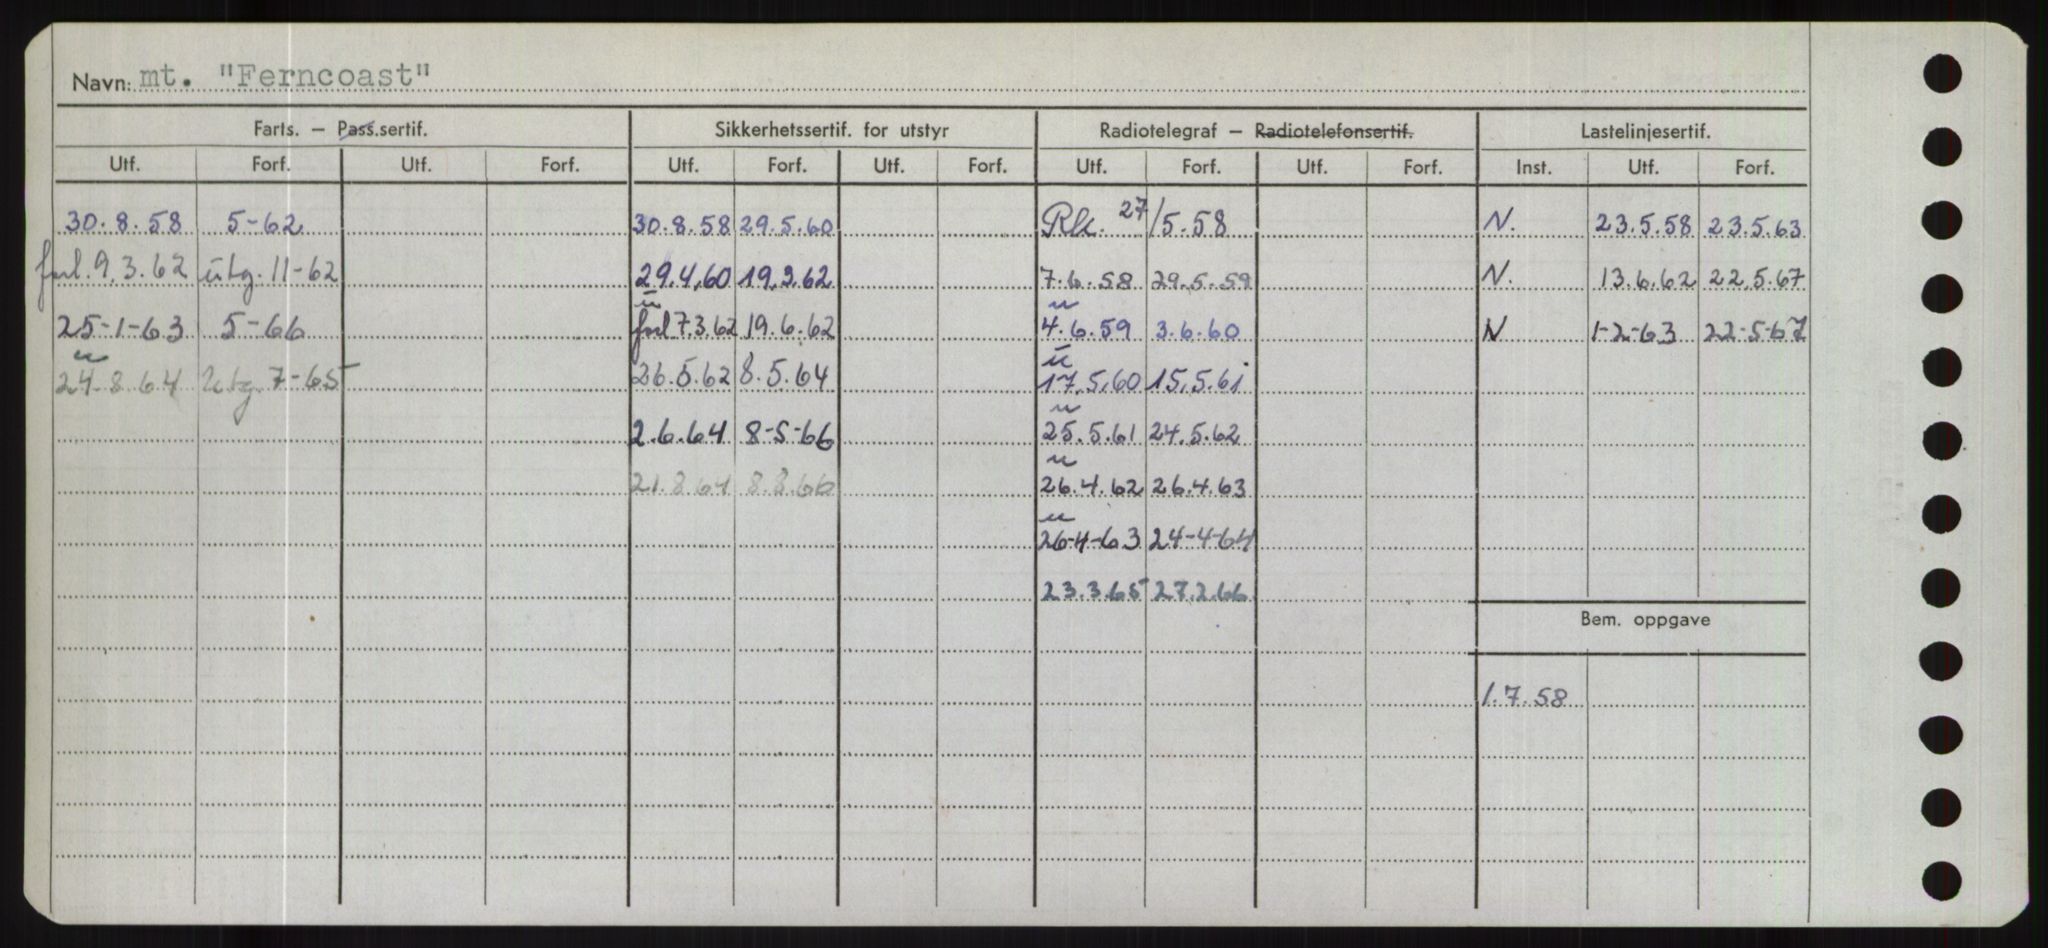 Navn: mt. "Ferncoast"
Farts. — Pass.sertif. Sikkerhetssertif. for utstyr Radiotelegraf — Radiotelefonsertif. Lastelinjesertif.
Utf. Forf. Utf. Forf. Utf. Forf. Utf. Forf. Utf. Forf. Utf. Forf. Inst. Utf. Forf.
30.8.58 5-62 30.8.58 29.5.60 Rk. 27/5.58 N. 23.5.58 23.5.63
forl. 9.3.62 utg. 11-62 29.4.60 19.3.62 7.6.58 29.5.59 N. 13.6.62 22.5.67
25-1-63 5-66 forl 7.3.62 19.6.62 4.6.59 3.6.60 N 1-2-63 22-5-67
24.8.64 Utg. 7-65 26.5.62 8.5.64 17.5.60 15.5.61
2.6.64 8-5-66 25.5.61 24.5.62
21.8.64 8.8.66 26.4.62 26.4.63
26-4-63 24-4-64
23.3.65 27.2.66
Bem. oppgave
1.7.58